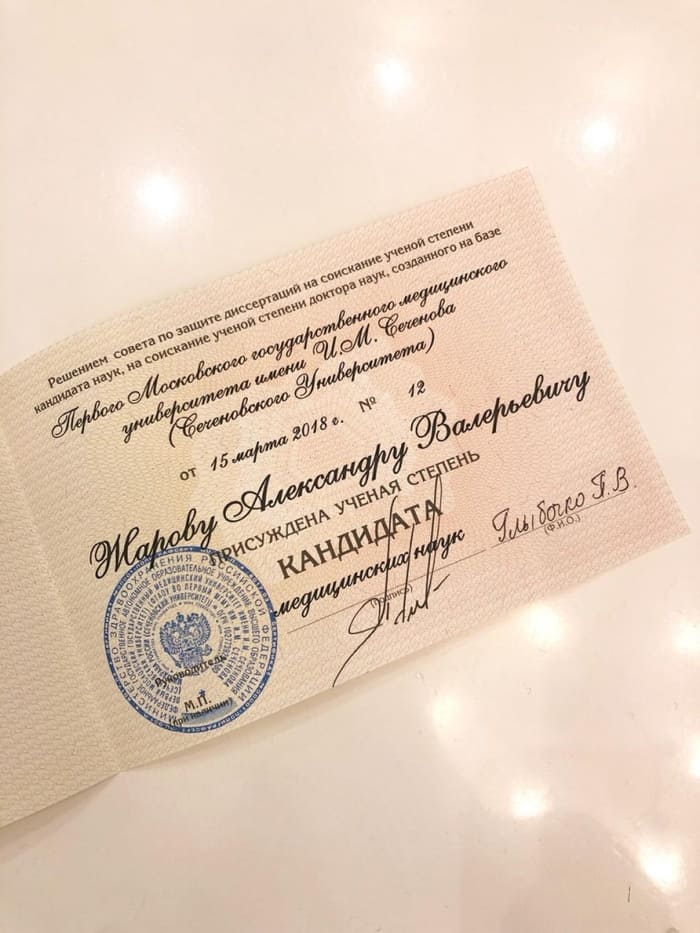 Решением совета по защите диссертаций на соискание ученой степени
кандидата наук, на соискание ученой степени доктора наук, созданного на базе
Первого Московского государственного медицинского
университета имени И.М. Сеченова
(Сеченовского Университета)
от 15 марта 2018 г. № 12
Жарову Александру Валерьевичу
ПРИСУЖДЕНА УЧЕНАЯ СТЕПЕНЬ
КАНДИДАТА
медицинских наук
Глыбочко П.В.
(подпись) (Ф.И.О.)
Руководитель
М.П.
(при наличии)
МИНИСТЕРСТВО ЗДРАВООХРАНЕНИЯ РОССИЙСКОЙ ФЕДЕРАЦИИ